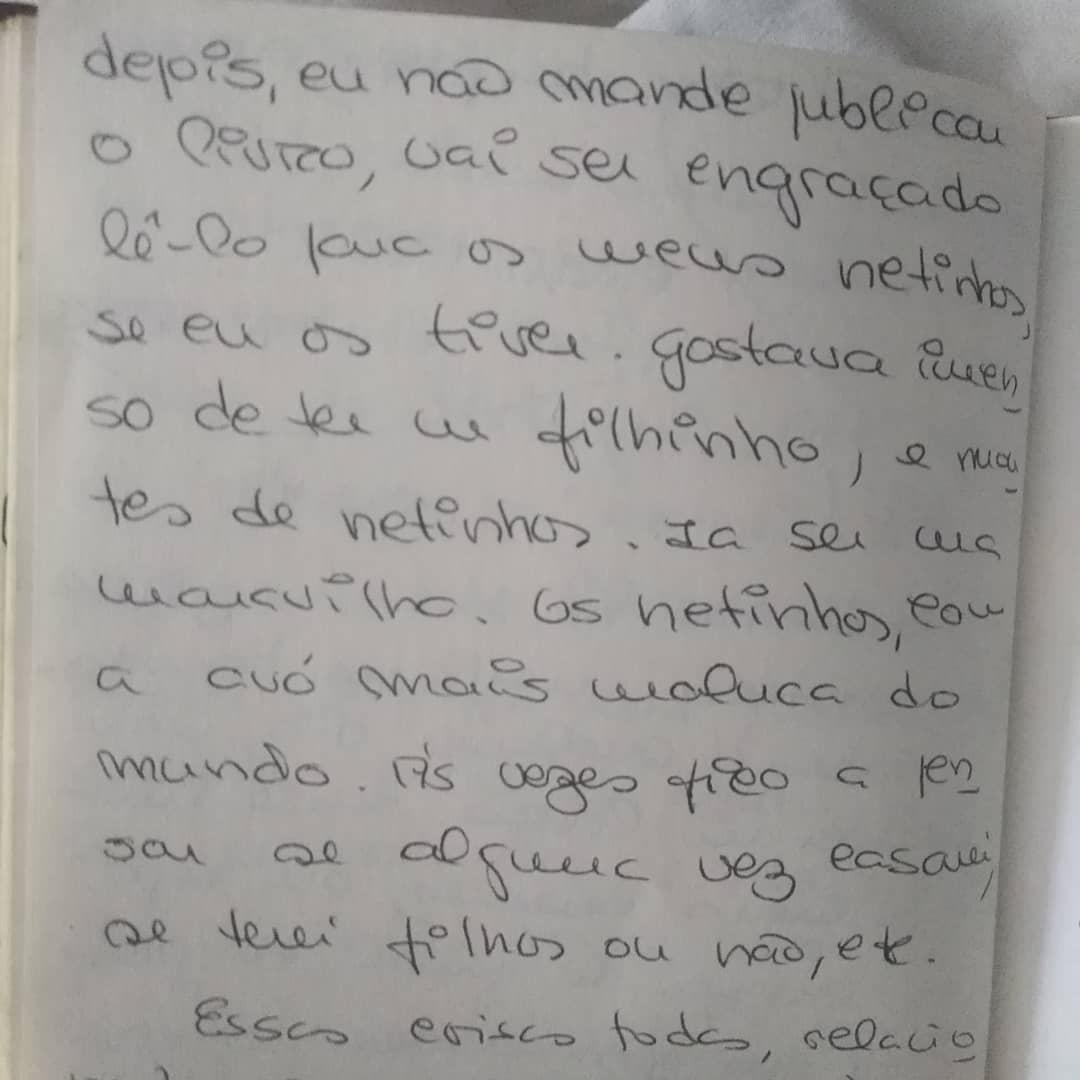 depois, eu não mande publicar
o livro, vai ser engraçado
lê-lo para os meus netinhos,
se eu os tiver. gostava imen
so de ter um filhinho, e mon
tes de netinhos. Ia ser uma
maravilha. Os netinhos, com
a avó mais maluca do
mundo. Às vezes fico a pen
sar se alguma vez casarei,
se terei filhos ou não, etc.
Essas coisas todas, relacio